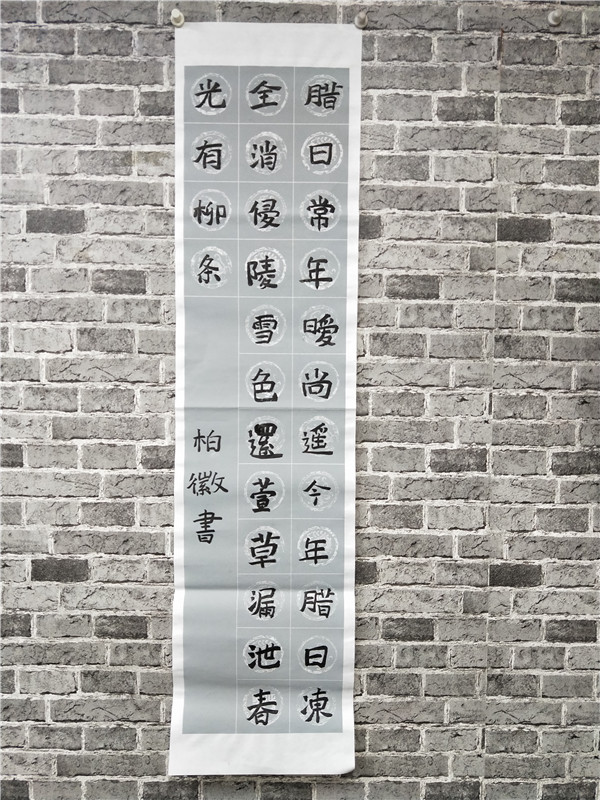 腊日常年暧尚遥今年腊日凍
全消侵陵雪色還萱草漏泄春
光有柳条
柏徽書